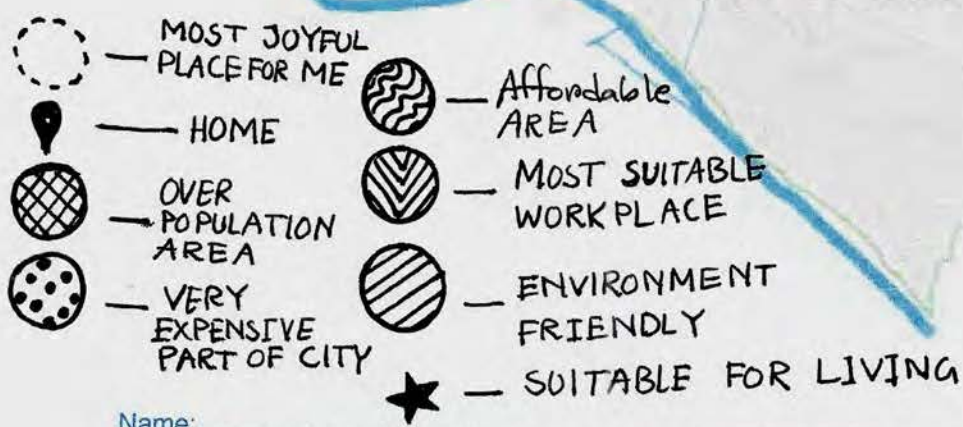 MOST JOYFUL
PLACE FOR ME
HOME
OVER
POPULATION
AREA
VERY
EXPENSIVE
PART OF CITY
Affordable
AREA
MOST SUITABLE
WORKPLACE
ENVIRONMENT
FRIENDLY
SUITABLE FOR LIVING
Name: